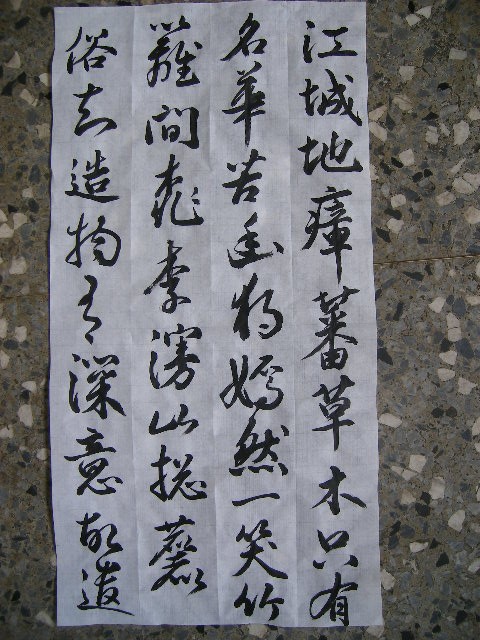 江城地瘴蕃草木只有
名華苦幽獨嫣然一笑竹
籬間桃李漫山總麤
俗知造物有深意故遣